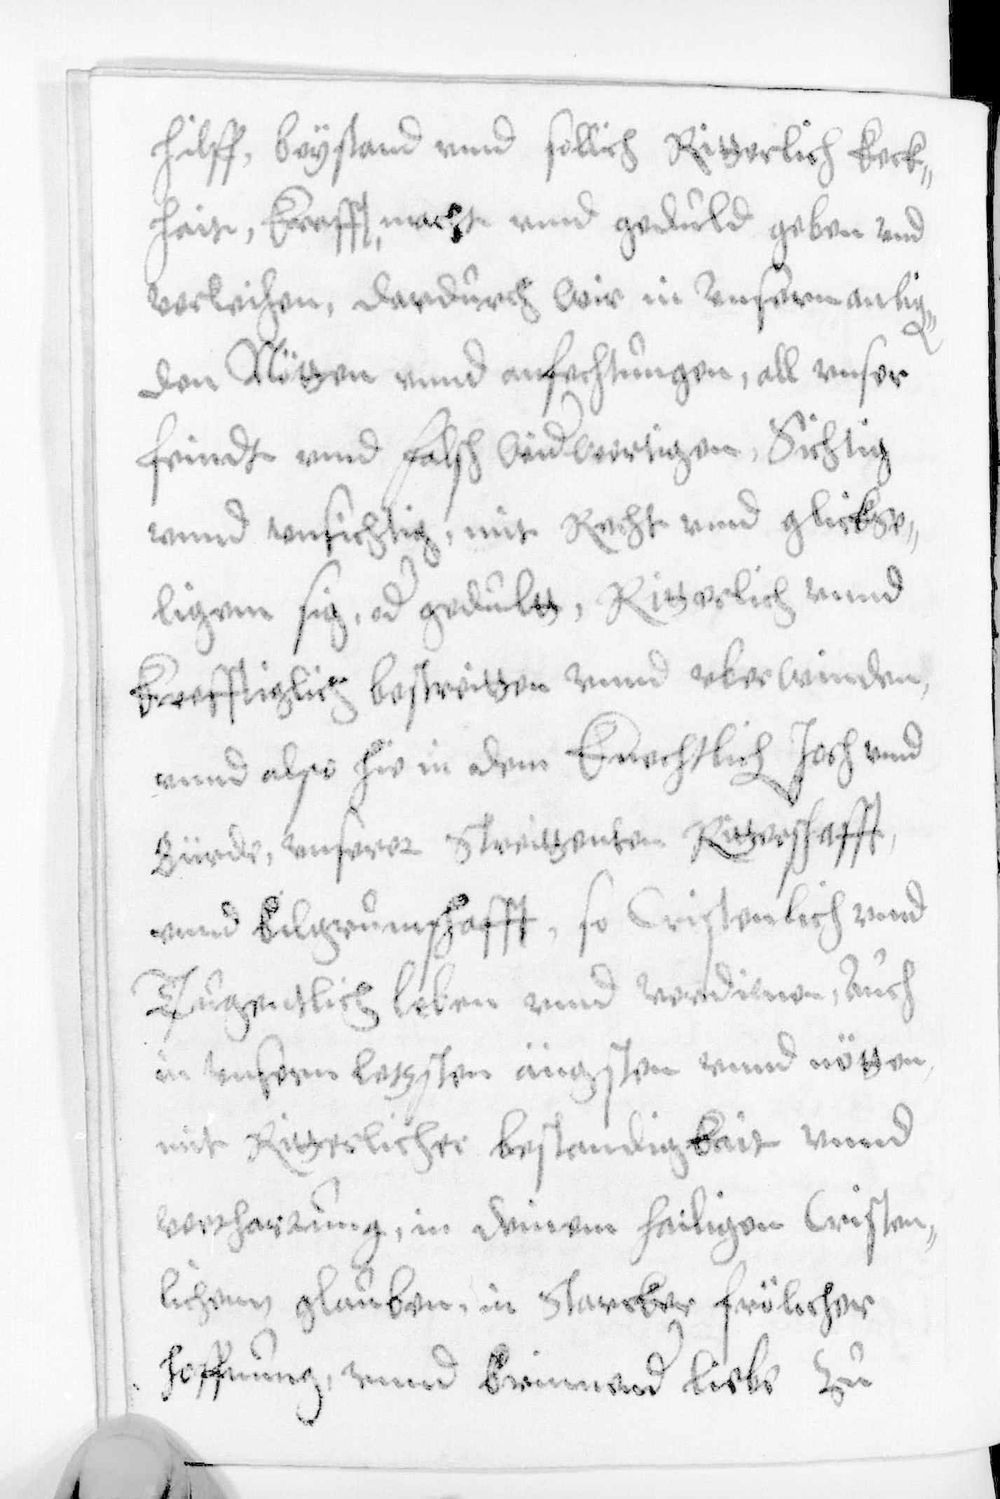 hilff, beystand vnnd sollich Ritterlich keck-
hait, Krafft, macht vnnd geduld geben vnd
verleihen, dardurch wir in vnsern anlig-
den Nötten vnnd anfechtungen, all vnser
feindt vnnd falsch widwertigen, Sichtig
vnnd vnsichtig, mit Recht vnnd glickse-
ligem sig, od gedult, Ritterlich vnnd
Krefftiglich bestreitten vnnd vberwinden,
vnnd also hie in dem Knechtlich Joch vnd
Bürde, vnserer Streittenden Ritterschafft,
vnnd bilgrumschafft, so Cristenlich vnnd
Tugentlich leben vnnd verdienen, Auch
in vnsern letzsten ängsten vnnd nötten,
mit Ritterlicher bestandigkait vnnd
verharrung, in deinem hailigen Cristen-
lichem glauben, in starcker frölicher
hoffnung, vnnd brinnend liebe zu